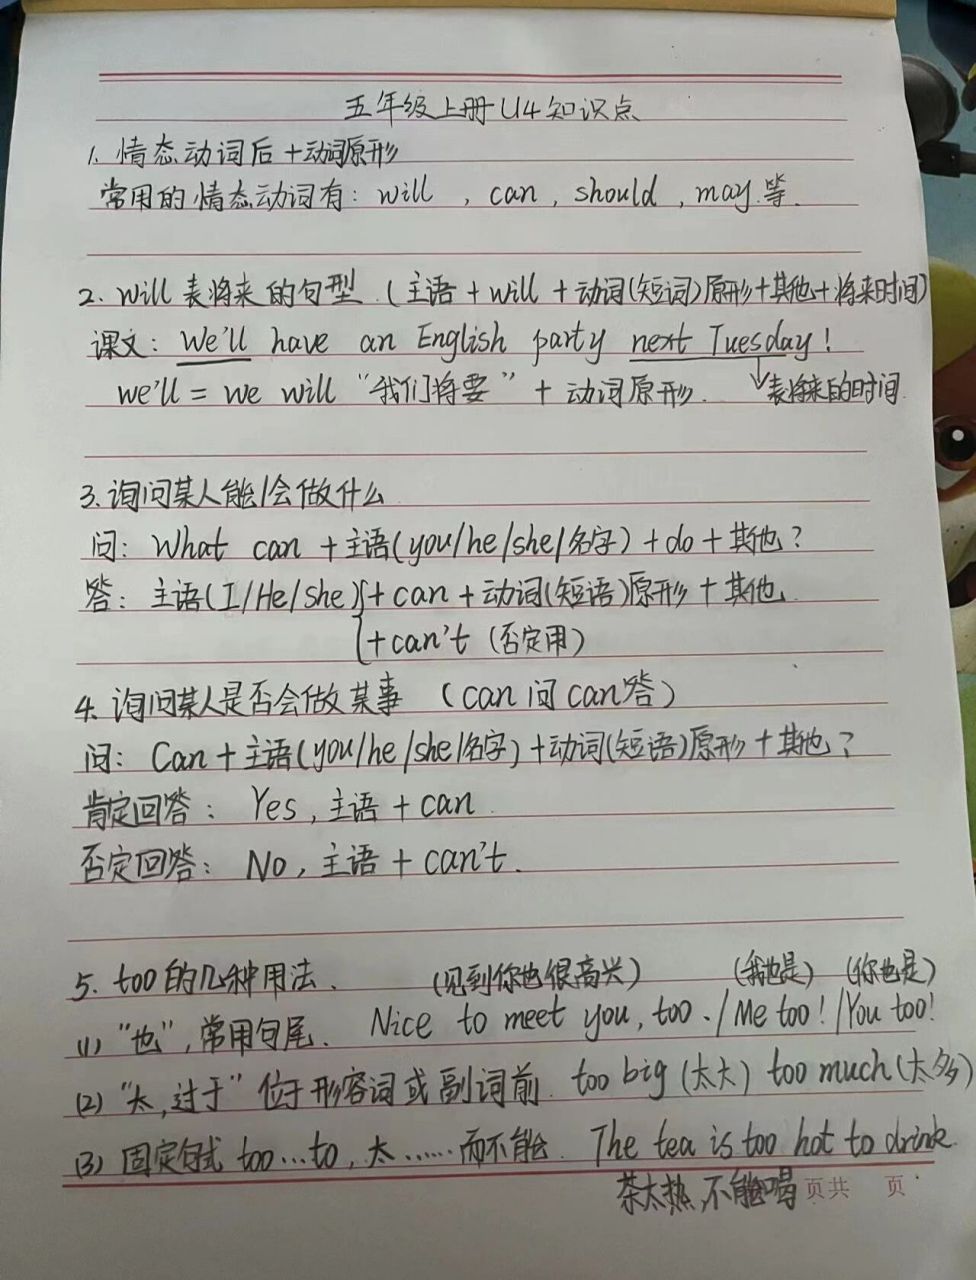 五年级上册U4知识点
1. 情态动词后+动词原形
常用的情态动词有: will , can , should , may 等.
2. will 表将来的句型.(主语+will+动词(短词)原形+其他+将来时间)
课文: We'll have an English party next Tuesday!
we'll = we will “我们将要” + 动词原形. 表将来的时间.
3. 询问某人能/会做什么
问: What can +主语(you/he/she/名字)+do+其他?
答: 主语(I/He/she){+can+动词(短语)原形+其他.
+can't (否定用)
4. 询问某人是否会做某事 (can问can答)
问: Can+主语(you/he/she/名字)+动词(短语)原形+其他?
肯定回答: Yes,主语+can.
否定回答: No,主语+can't.
5. too的几种用法. (见到你也很高兴) (我也是) (你也是)
(1) “也”,常用句尾. Nice to meet you, too. /Me too! /You too!
(2) “太,过于”位于形容词或副词前. too big (太大) too much (太多)
(3) 固定句式 too...to, 太……而不能. The tea is too hot to drink.
茶太热,不能喝 页共 页